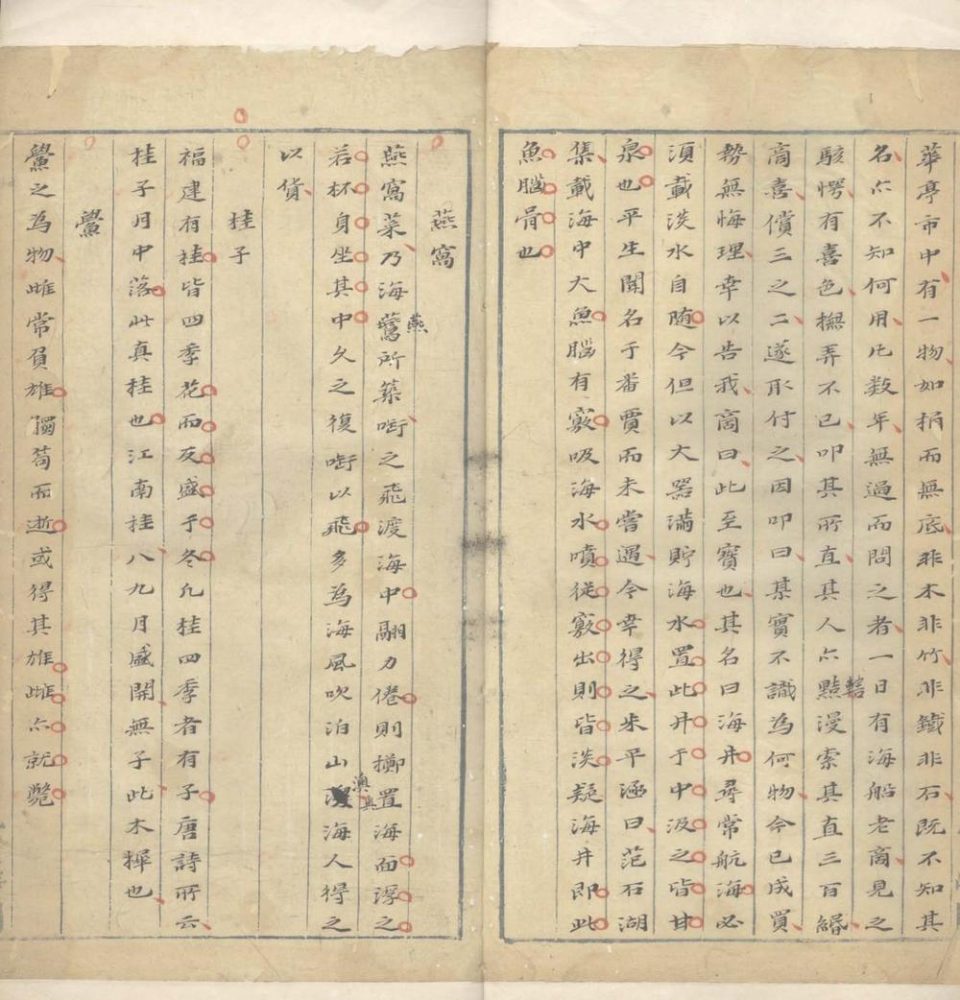 華亭市中有一物如捅而無底非木非竹非鐵非石既不知其
名亦不知何用凡数年無過而問之者一日有海船老商見之
駭愕有喜色撫弄不已叩其所直其人亦點漫索其直三百緡
黠
商喜償三之二遂取付之因叩曰某實不識為何物今已成買
勢無悔理幸以告我商曰此至寶也其名曰海井尋常航海必
湏載淡水自随今但以大器滿貯海水置此井于中汲之皆甘
泉也平生聞名于番賈而未嘗遇今幸得之朱平涵曰范石湖
集載海中大魚腦有竅吸海水噴從竅出則皆淡疑海井即此
魚腦骨也
燕窩
燕窩菜乃海鷰所築啣之飛渡海中翮力倦則擲置海面浮之
燕
若杯身坐其中久之復啣以飛多為海風吹泊山澳海人得之
以貨
桂子
福建有桂皆四季花而反盛于冬凡桂四季者有子唐詩所云
桂子月中落此真桂也江南桂八九月盛開無子此木樨也
鱟
鱟之為物雌常負雄獨筍而逝或得其雄雌亦就斃